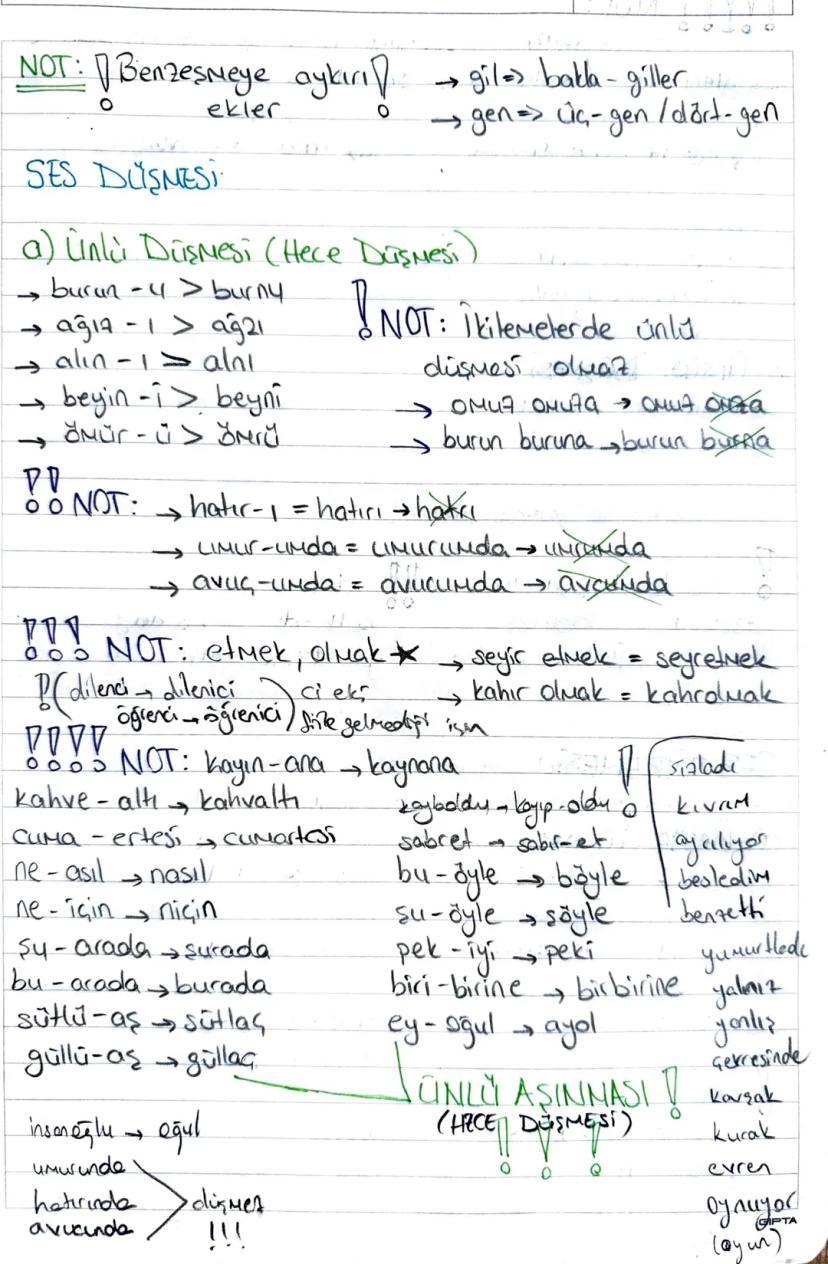 NOT: ! Benzeşmeye aykırı ! → gil => bakla-giller
ekler → gen => üç-gen / dört-gen
SES DÜŞMESİ
a) Ünlü Düşmesi (Hece Düşmesi)
→ burun - u > burnu
→ ağız - ı > ağzı
→ alın - ı > alnı
→ beyin - i > beyni
→ ömür - ü > ömrü
! NOT: İkilemelerde ünlü
düşmesi olmaz
→ omuz omuza → omuz omza
→ burun buruna → burun burna
!! NOT: → hatır-ı = hatırı → hatrı
→ umur-umda = umurumda → umrumda
→ avuç-umda = avucumda → avcumda
!!! NOT: etmek, olmak ★ → seyir etmek = seyretmek
→ kahır olmak = kahrolmak
! (dilenci → dilenici
öğrenci → öğrenici) ci eki
fiile gelmediği için
!!!! NOT: kayın-ana → kaynana
kahve-altı → kahvaltı
cuma-ertesi → cumartesi
ne-asıl → nasıl
ne-için → niçin
şu-arada → şurada
bu-arada → burada
sütlü-aş → sütlaç
güllü-aş → güllaç
kayboldu → kayıp-oldu !
sabret → sabır-et
bu-öyle → böyle
şu-öyle → şöyle
pek-iyi → peki
biri-birine → birbirine
ey-oğul → ayol
ÜNLÜ AŞINMASI !
(HECE DÜŞMESİ)
!!!
sızladı
kıvrım
ayrılıyor
besledim
benzetti
yumurtladı
yalnız
yanlış
çevresinde
kavşak
kurak
evren
oynuyor
(oyun)
insanoğlu → oğul
umurunda
hatırında
avucunda
düşmez
!!!
GIPTA